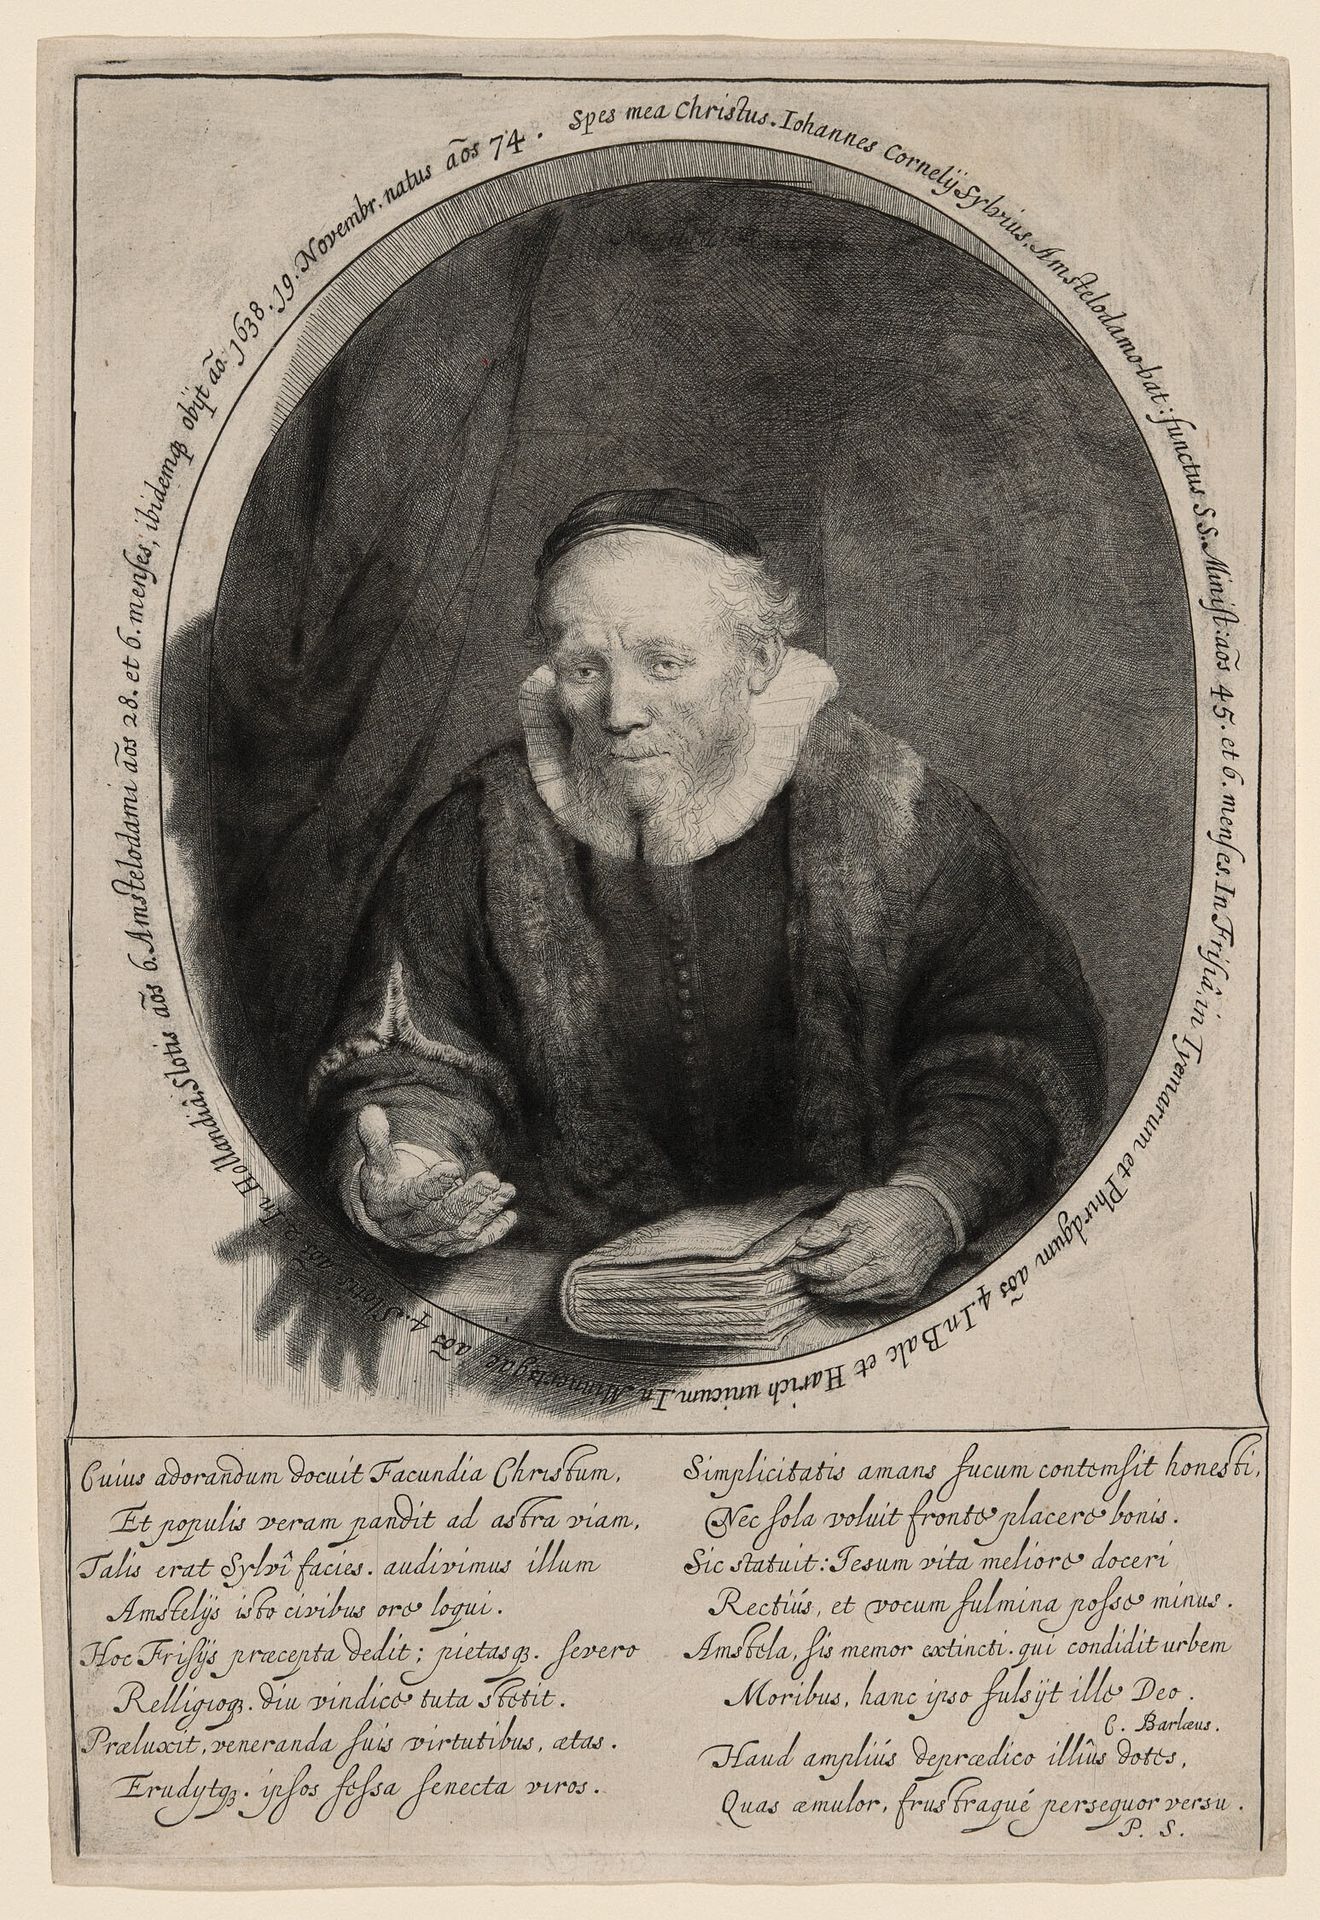 Spes mea Christus. Iohannes Cornelÿ Sylvius, Amstelodamo-bat: functus S S. Minist: aõs 45. et 6. menses. In Frisiâ, in Tyemarum et Phirdgum aõs 4. In Balc et Harich unicum. In Minnertsgae aõs 4. Slotis aõs 2. In Hollandiâ, Slotis aõs 6. Amstelodami aõs 28. et 6. menses; ibidemqꝫ obÿt aõ. 1638. 19. Novembr. natus aõs 74.
Cuius adorandum docuit Facundia Christum,
Et populis veram pandit ad astra viam,
Talis erat Sylvî facies. audivimus illum
Amstelÿs isto civibus ore loqui.
Hoc Frisÿs præcepta dedit; pietasqꝫ. severo
Relligioqꝫ. diu vindice tuta stetit.
Præluxit, veneranda suis virtutibus, ætas.
Erudytqꝫ. ipsos fessa senecta viros.
Simplicitatis amans fucum contemsit honesti,
Nec sola voluit fronte placere bonis.
Sic statuit: Iesum vita meliore doceri
Rectiús, et vocum fulmina posse minus.
Amstela, sis memor extincti. qui condidit urbem
Moribus, hanc ipso fulsÿt ille Deo.
C. Barlæus.
Haud ampliús deprædico illîus dotes,
Quas æmulor, frustraqué persequor versu.
P. S.